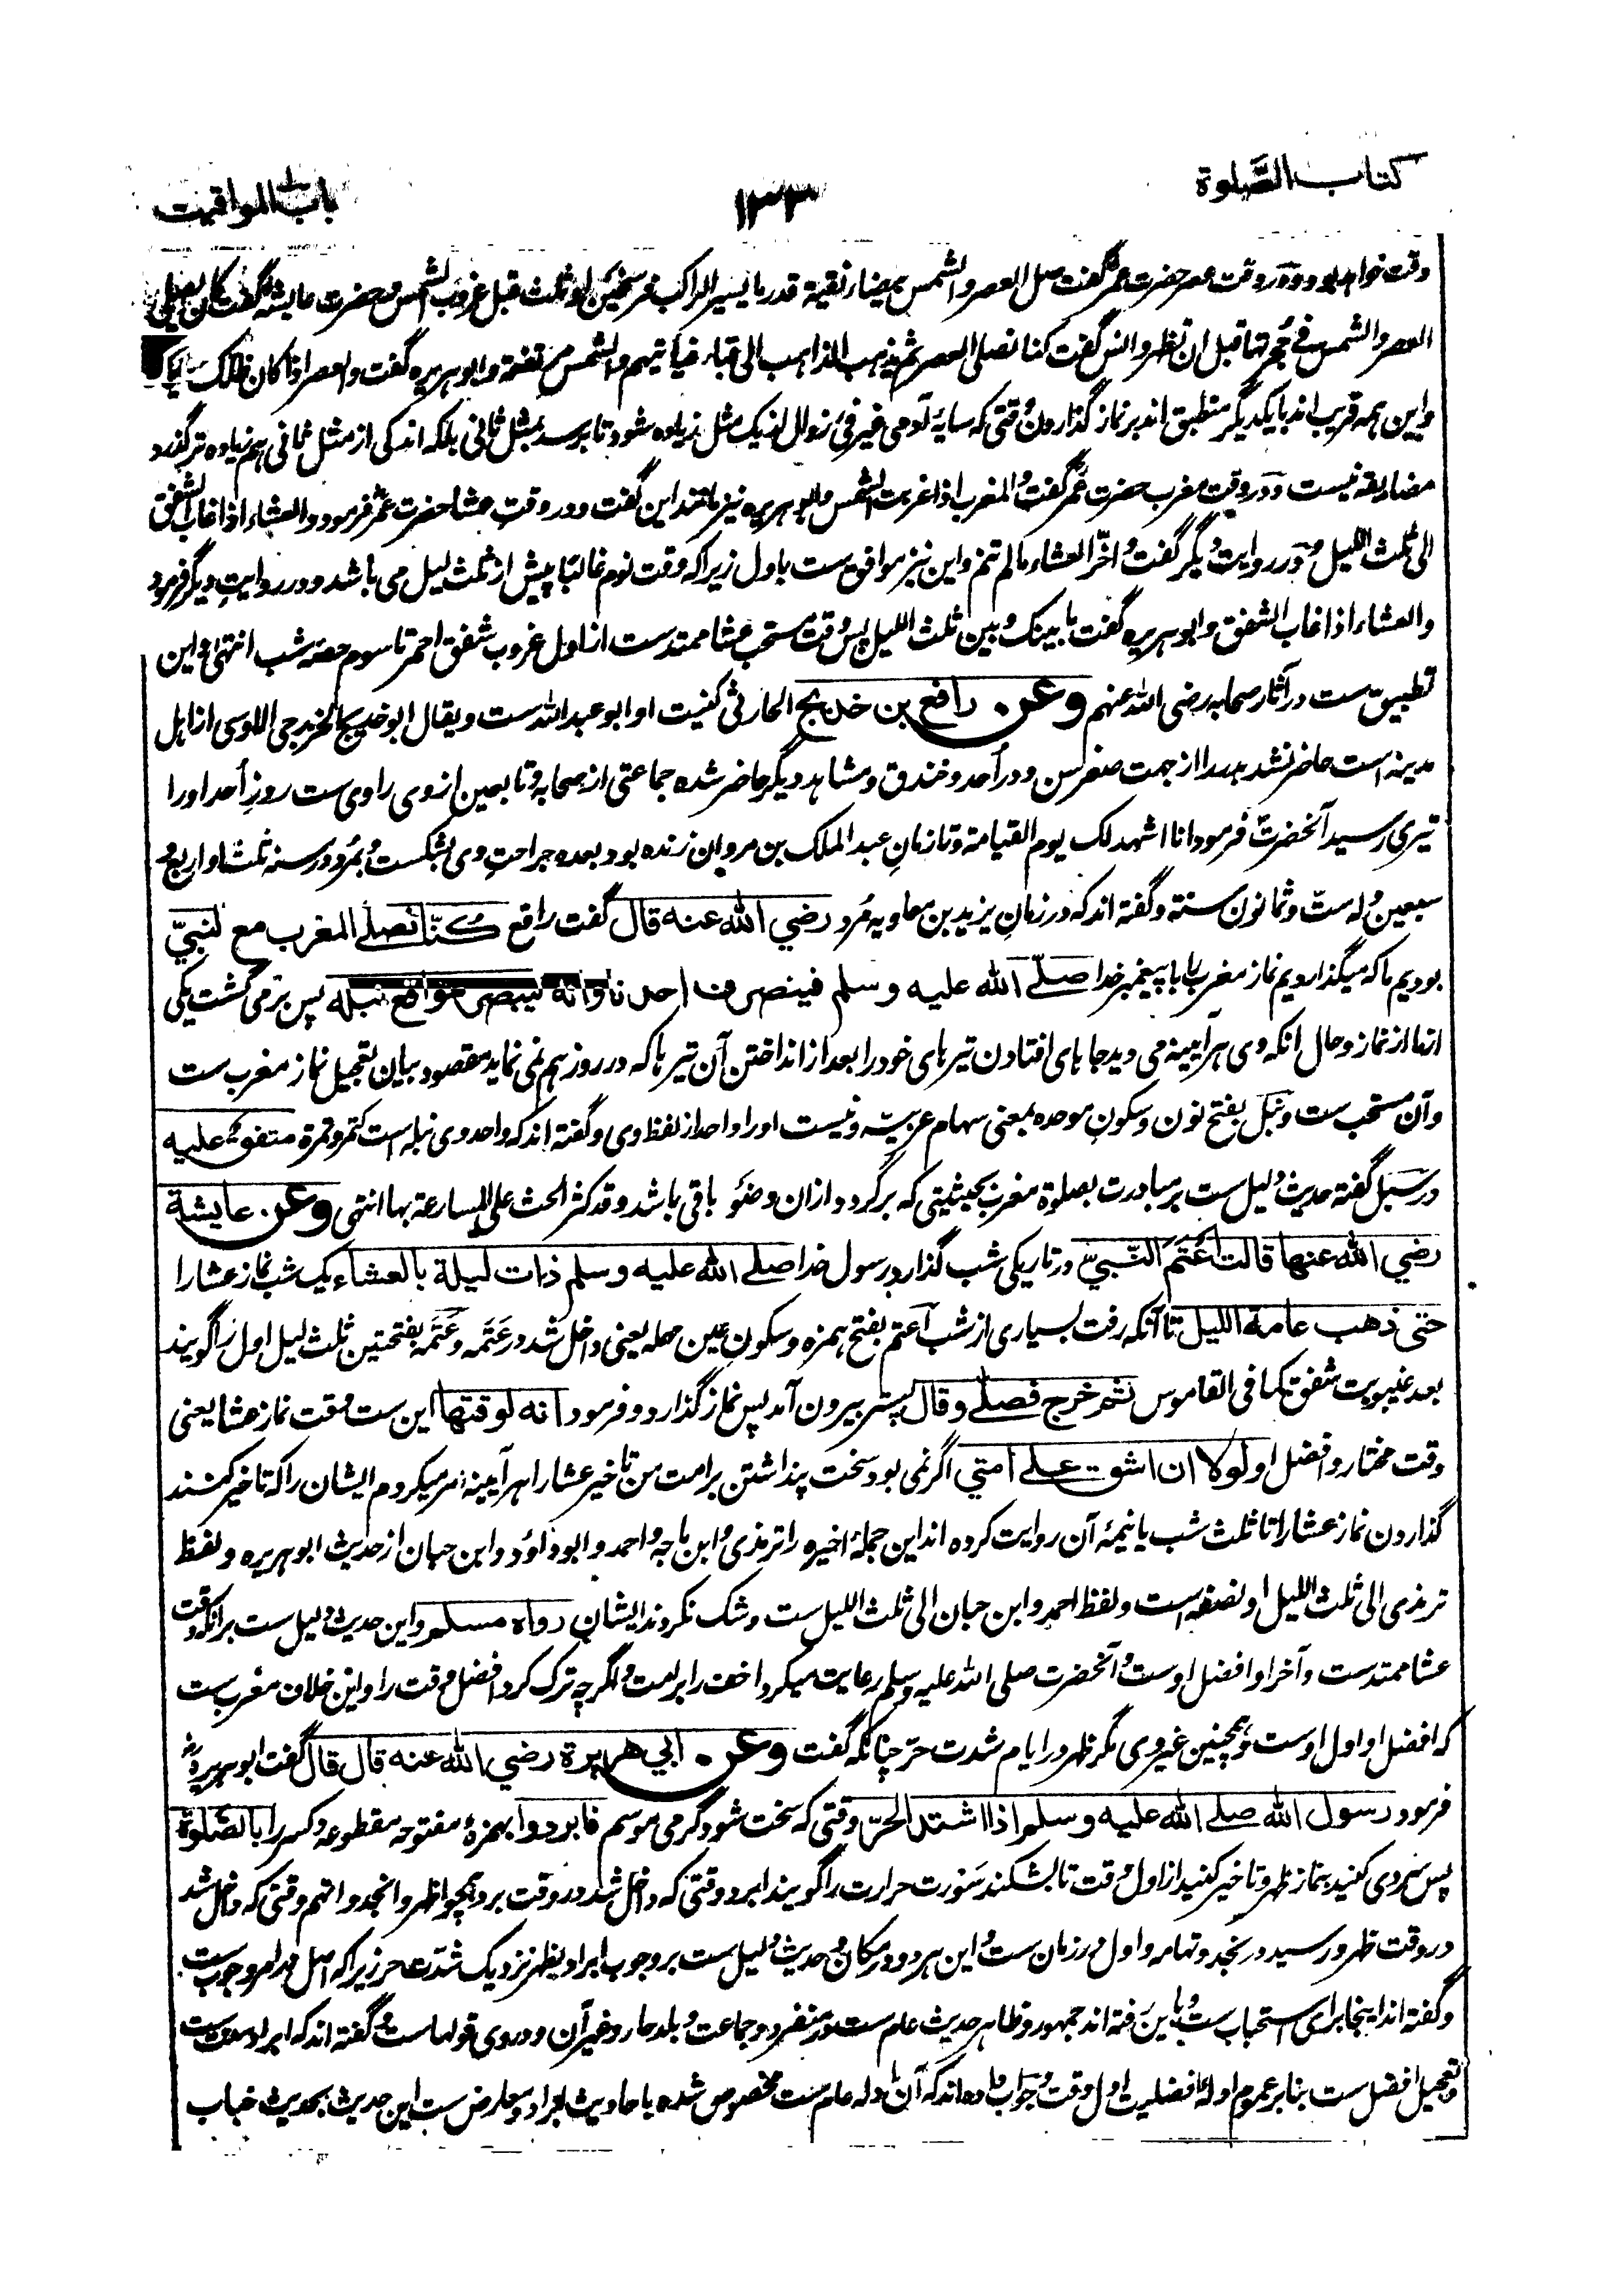 کتاب الصَّلوة
۱۳۳
باب المواقیت
وقت خواهد بود و در وقت عصر حضرت عمر گفت صل العصر و الشمس بیضاء نقیة قدر ما یسیر الراکب فرسخین او ثلث قبل غروب الشمس و حضرت عایشه گفت کان یصلی
العصر و الشمس فی حجرتها قبل ان تظهر و انس گفت کنا نصلی العصر ثم یذهب الذاهب الی قباء فیاتیهم و الشمس مرتفعة و ابو هریره گفت و العصر اذا کان ظلک
و این همه قریب اند بایکدیگر منطبق اند بر نماز گذاردن وقتی که سایهٔ آدمی غیر فئ زوال از یک مثل زیاده شود تا برسد بمثل ثانی بلکه اندکی از مثل ثانی هم زیاده تر گذرد
مضایقه نیست و در وقت مغرب حضرت عمر گفت و المغرب اذا غربت الشمس و ابو هریره نیز مانند این گفت و در وقت عشا حضرت عمر فرمود و العشاء اذا غاب الشفق
الی ثلث اللیل و در روایت دیگر گفت اخّر العشاء ما لم تنم و این نیز موافق ست باول زیرا که وقت نوم غالبًا پیش از ثلث لیل می باشد و در روایت دیگر فرمود
و العشاء اذا غاب الشفق و ابو هریره گفت ما بینک و بین ثلث اللیل پس وقت مستحب عشا ممتد ست از اول غروب شفق احمر تا سوم حصهٔ شب انتهی و این
تطبیق ست در آثار صحابه رضی الله عنهم وعن رافع بن خدیج الحارثی کنیت او ابو عبد الله ست و یقال ابو خدیج الخزرجی الاوسی از اهل
مدینه است حاضر نشد بدر را از جهت صغر سن و در اُحد و خندق و مشاهد دیگر حاضر شده جماعتی از صحابه و تابعین از وی راوی ست روز اُحد او را
تیری رسید آنحضرت فرمود انا اشهد لک یوم القیامة و تا زمان عبد الملک بن مروان زنده بود بعده جراحتِ وی بشکست و بمُرد در سنه ثلث او اربع و
سبعین و له ستّ و ثمانون سنة و گفته اند که در زمان یزید بن معاویه مُرد رضي الله عنه قال گفت رافع کُنّا نصلے المغرب مع النبيّ
بودیم ما که میگذاردیم نماز مغرب را با پیغمبر خدا صلّے الله علیه وسلم فینصرف احدنا وانه لیبصر مواقع نبله پس بر می گشت یکی
از ما از نماز و حال آنکه وی هر آیینه می دید جا های افتادن تیر های خود را بعد از انداختن آن تیر ها که در روز هم نمی نماید مقصود بیان تعجیل نماز مغرب ست
و آن مستحب ست و نَبْل بفتح نون و سکون موحده بمعنی سهام عربیّه و نیست او را واحد از لفظ وی و گفته اند که واحد وی نبله است کتمر و تمرة متفق علیه
در سبل گفته حدیث دلیل ست بر مبادرت بصلوة مغرب بحیثیتی که برگردد و ازان وضَو باقی باشد و قد کثر الحث علی المسارعة بها انتهی وعن عایشة
رضي الله عنها قالت اَعْتَمَ النّبيّ در تاریکی شب گذارد رسول خدا صلے الله علیه وسلم ذات لیلة بالعشاء یک شب نماز عشا را
حتی ذهب عامة اللیل تا آنکه رفت بسیاری از شب اعتم بفتح همزه و سکون عین مهمله یعنی داخل شد در عَتَمَه و عَتَمَه بفتحتین ثلث لیل اول را گویند
بعد غیبوبت شفق کما فی القاموس ثم خرج فصلے وقال پستر بیرون آمد پس نماز گذارد و فرمود انه لوقتها این ست وقت نماز عشا یعنی
وقت مختار و افضل او لولا ان اشق علے امتي اگر نمی بود سخت پنداشتن بر امت من تاخیر عشا را هر آیینه امر میکردم ایشان را که تاخیر کنند
گذاردن نماز عشا را تا ثلث شب یا نیمهٔ آن روایت کرده اند این جملهٔ اخیره را ترمذی و ابن ماجه و احمد و ابو داؤد و ابن حبان از حدیث ابو هریره و لفظ
ترمذی الی ثلث اللیل او نصفه است و لفظ احمد و ابن حبان الی ثلث اللیل ست و شک نکردند ایشان رواه مسلم و این حدیث دلیل ست بر انکه وقت
عشا ممتد ست و آخر او افضل اوست و آنحضرت صلی الله علیه وسلم رعایت میکرد اخف را بر امت و اگرچه ترک کرد افضل وقت را و این خلاف مغرب ست
که افضل او اول اوست و همچنین غیر وی مگر ظهر در ایام شدت حرّ چنانکه گفت وعن ابي هریرة رضي الله عنه قال قال گفت ابو هریره
فرمود رسول الله صلے الله علیه وسلم اذا اشتد الحرّ وقتی که سخت شود گرمی موسم فابردوا بهمزهٔ مفتوحه مقطوعه و کسر را بالصّلوة
پس سردی کنید بنماز ظهر و تاخیر کنید از اول وقت تا بشکند سَورت حرارت را گویند ابرد وقتی که داخل شد در وقت برد همچو اظهر و انجد و اتهم وقتی که داخل شد
در وقت ظهر و رسید در نجد و تهامه و اول در زمان ست و این هر دو در مکان و حدیث دلیل ست بر وجوب ابراد بظهر نزدیک شدّت حر زیرا که اصل در امر وجوب ست
و گفته اند اینجا برای استحباب ست و باین رفته اند جمهور و ظاهر حدیث عام ست در منفرد و جماعت و بلد حار و غیر آن و در وی قولهاست و گفته اند که ابراد سنت ست
و تعجیل افضل ست بنابر عموم ادلهٔ افضلیت اول وقت و جواب داده اند که آن ادله عام ست مخصوص شده با حادیث ابراد و معارض ست این حدیث بحدیث خباب